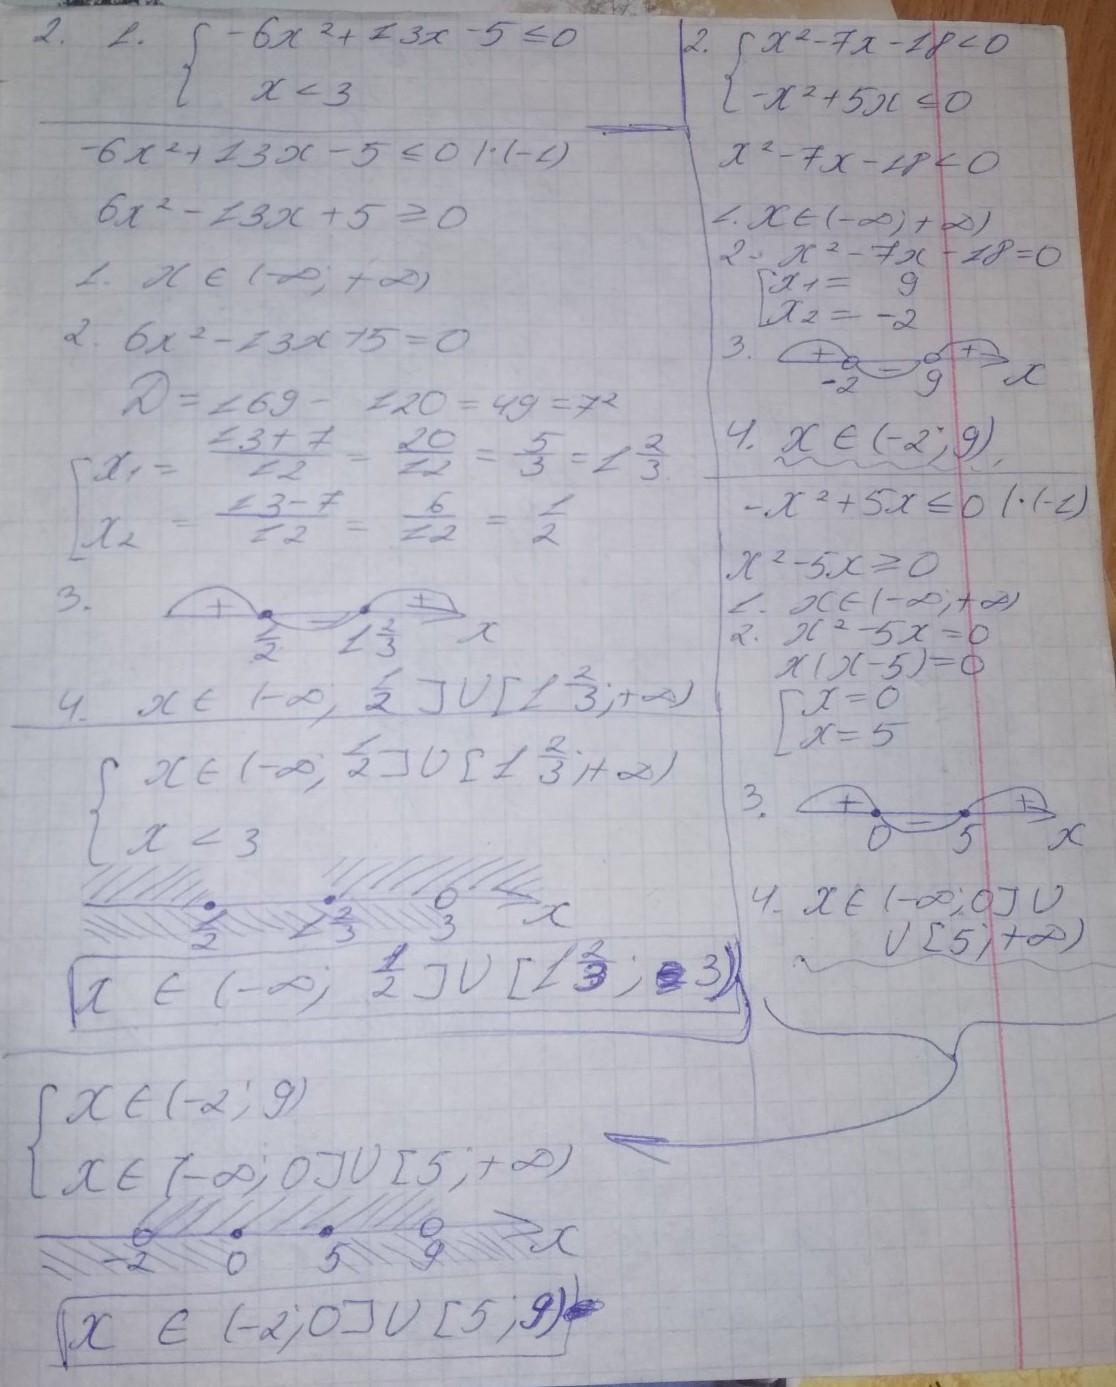 2. 1. { -6x²+13x-5≤0
x<3
-6x²+13x-5≤0 |·(-1)
6x²-13x+5≥0
1. x∈(-∞;+∞)
2. 6x²-13x+5=0
D=169-120=49=7²
[ x₁= 13+7/12 = 20/12 = 5/3 = 1 2/3
x₂ = 13-7/12 = 6/12 = 1/2
3. + - +
1/2 1 2/3 x
4. x∈(-∞; 1/2]U[1 2/3;+∞)
{ x∈(-∞; 1/2]U[1 2/3;+∞)
x<3
1/2 1 2/3 3 x
x ∈ (-∞; 1/2]U[1 2/3; 3)
2. { x²-7x-18<0
-x²+5x≤0
x²-7x-18<0
1. x∈(-∞;+∞)
2. x²-7x-18=0
[ x₁= 9
x₂=-2
3. + - +
-2 9 x
4. x∈(-2;9).
-x²+5x≤0 |·(-1)
x²-5x≥0
1. x∈(-∞;+∞)
2. x²-5x=0
x(x-5)=0
[ x=0
x=5
3. + - +
0 5 x
4. x∈(-∞;0]U
U[5;+∞)
{ x∈(-2;9)
x∈(-∞;0]U[5;+∞)
-2 0 5 9 x
x ∈ (-2;0]U[5;9)